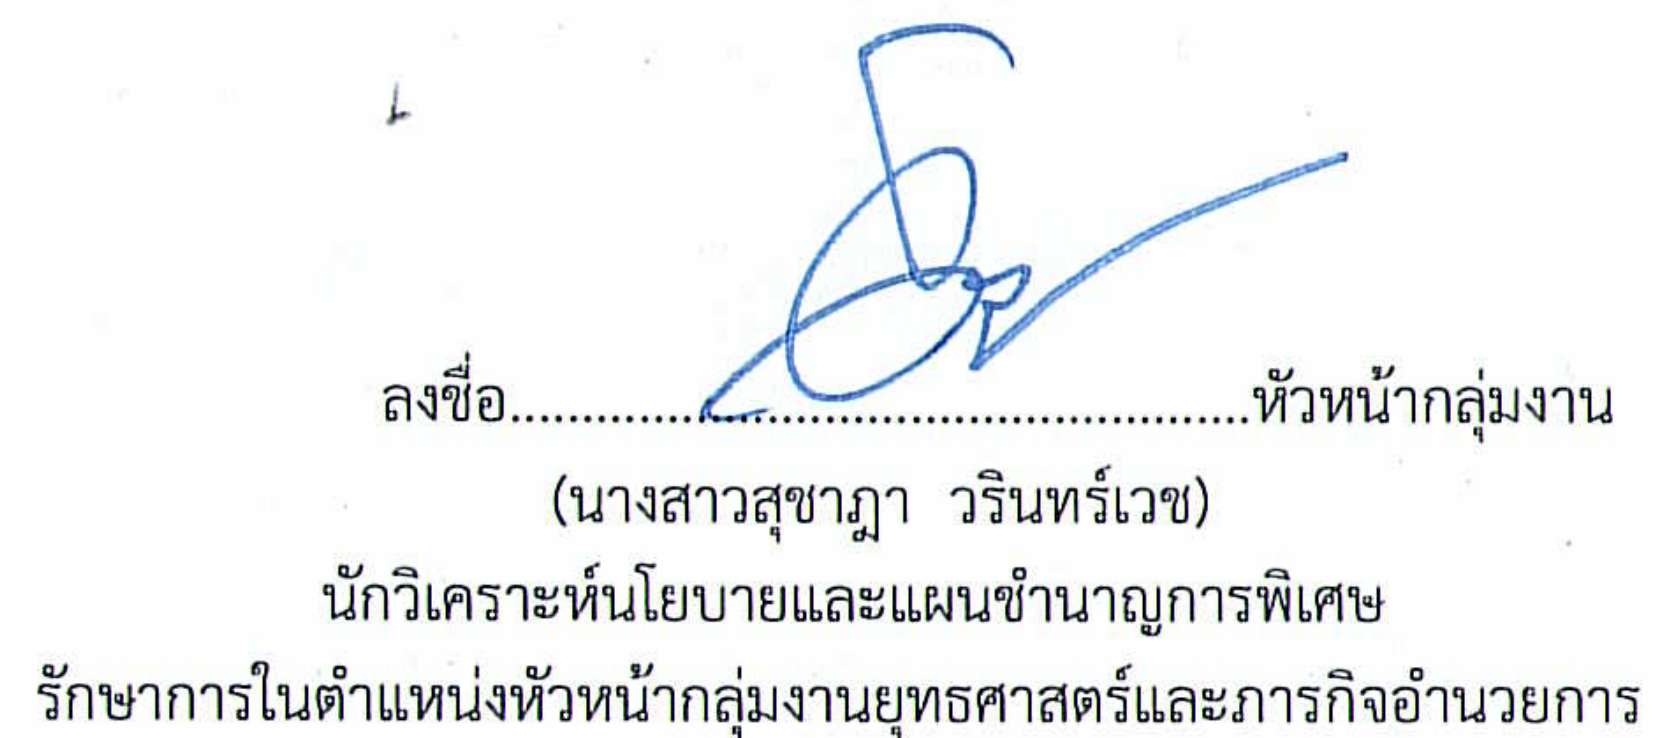 ลงชื่อ....................................................หัวหน้ากลุ่มงาน
(นางสาวสุชาฎา วรินทร์เวช)
นักวิเคราะห์นโยบายและแผนชำนาญการพิเศษ
รักษาการในตำแหน่งหัวหน้ากลุ่มงานยุทธศาสตร์และภารกิจอำนวยการ